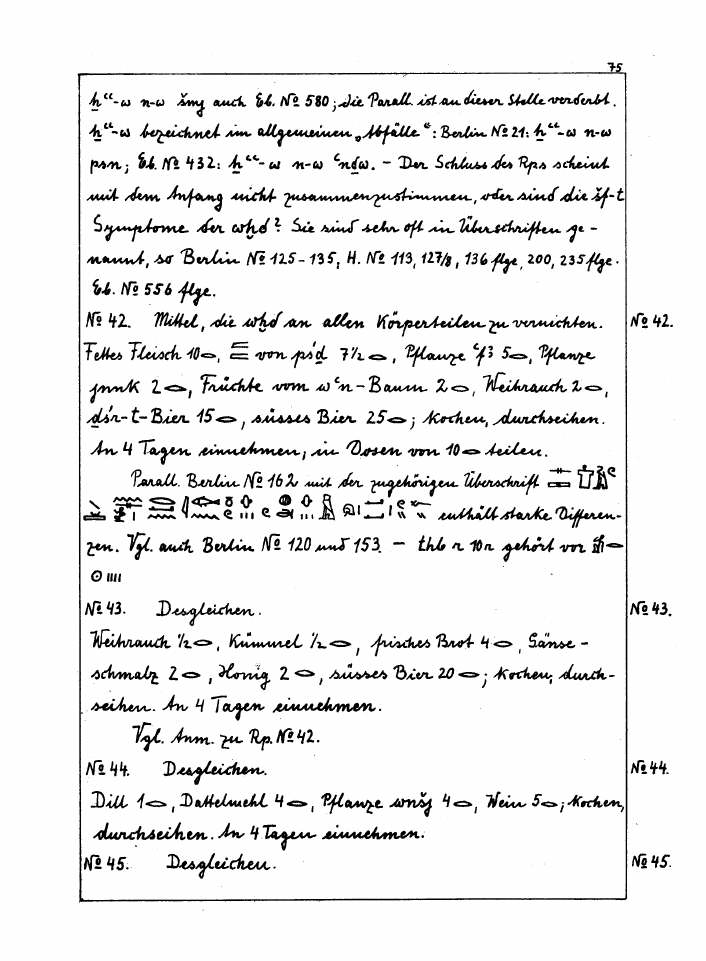 75
ẖʿʿ-w n-w šmj auch Eb. No 580; die Parall. ist an dieser Stelle verderbt.
ẖʿʿ-w bezeichnet im allgemeinen „Abfälle“: Berlin No 21: ẖʿʿ-w n-w
psn; Eb. No 432: ẖʿʿ-w n-w ʿnḏw. – Der Schluss des Rps scheint
mit dem Anfang nicht zusammenzustimmen, oder sind die šf-t
Symptome der wḫd? Sie sind sehr oft in Überschriften ge-
nannt, so Berlin No 125-135, H. No 113, 127/8, 136 flge, 200, 235 flge.
Eb. No 556 flge.
No 42. Mittel, die wḫd an allen Körperteilen zu vernichten. No 42.
Fettes Fleisch 10 , von 7½ , Pflanze ʿf3 5 , Pflanze
jnnk 2 , Früchte vom wʿn-Baum 2 , Weihrauch 2 ,
ḏśr-t-Bier 15 , süsses Bier 25 ; Kochen, durchseihen.
An 4 Tagen einnehmen, in Dosen von 10 teilen.
Parall. Berlin No 162 mit der zugehörigen Überschrift
enthält starke Differen-
zen. Vgl. auch Berlin No 120 und 153. – thb r 10 r gehört vor
No 43. Desgleichen. No 43.
Weihrauch ½ , Kümmel ½ , frisches Brot 4 , Gänse-
schmalz 2 , Honig 2 , süsses Bier 20 ; Kochen, durch-
seihen. An 4 Tagen einnehmen.
Vgl. Anm. zu Rp. No 42.
No 44. Desgleichen. No 44.
Dill 1 , Dattelmehl 4 , Pflanze wnšj 4 , Wein 5 ; Kochen,
durchseihen. An 4 Tagen einnehmen.
No 45. Desgleichen. No 45.